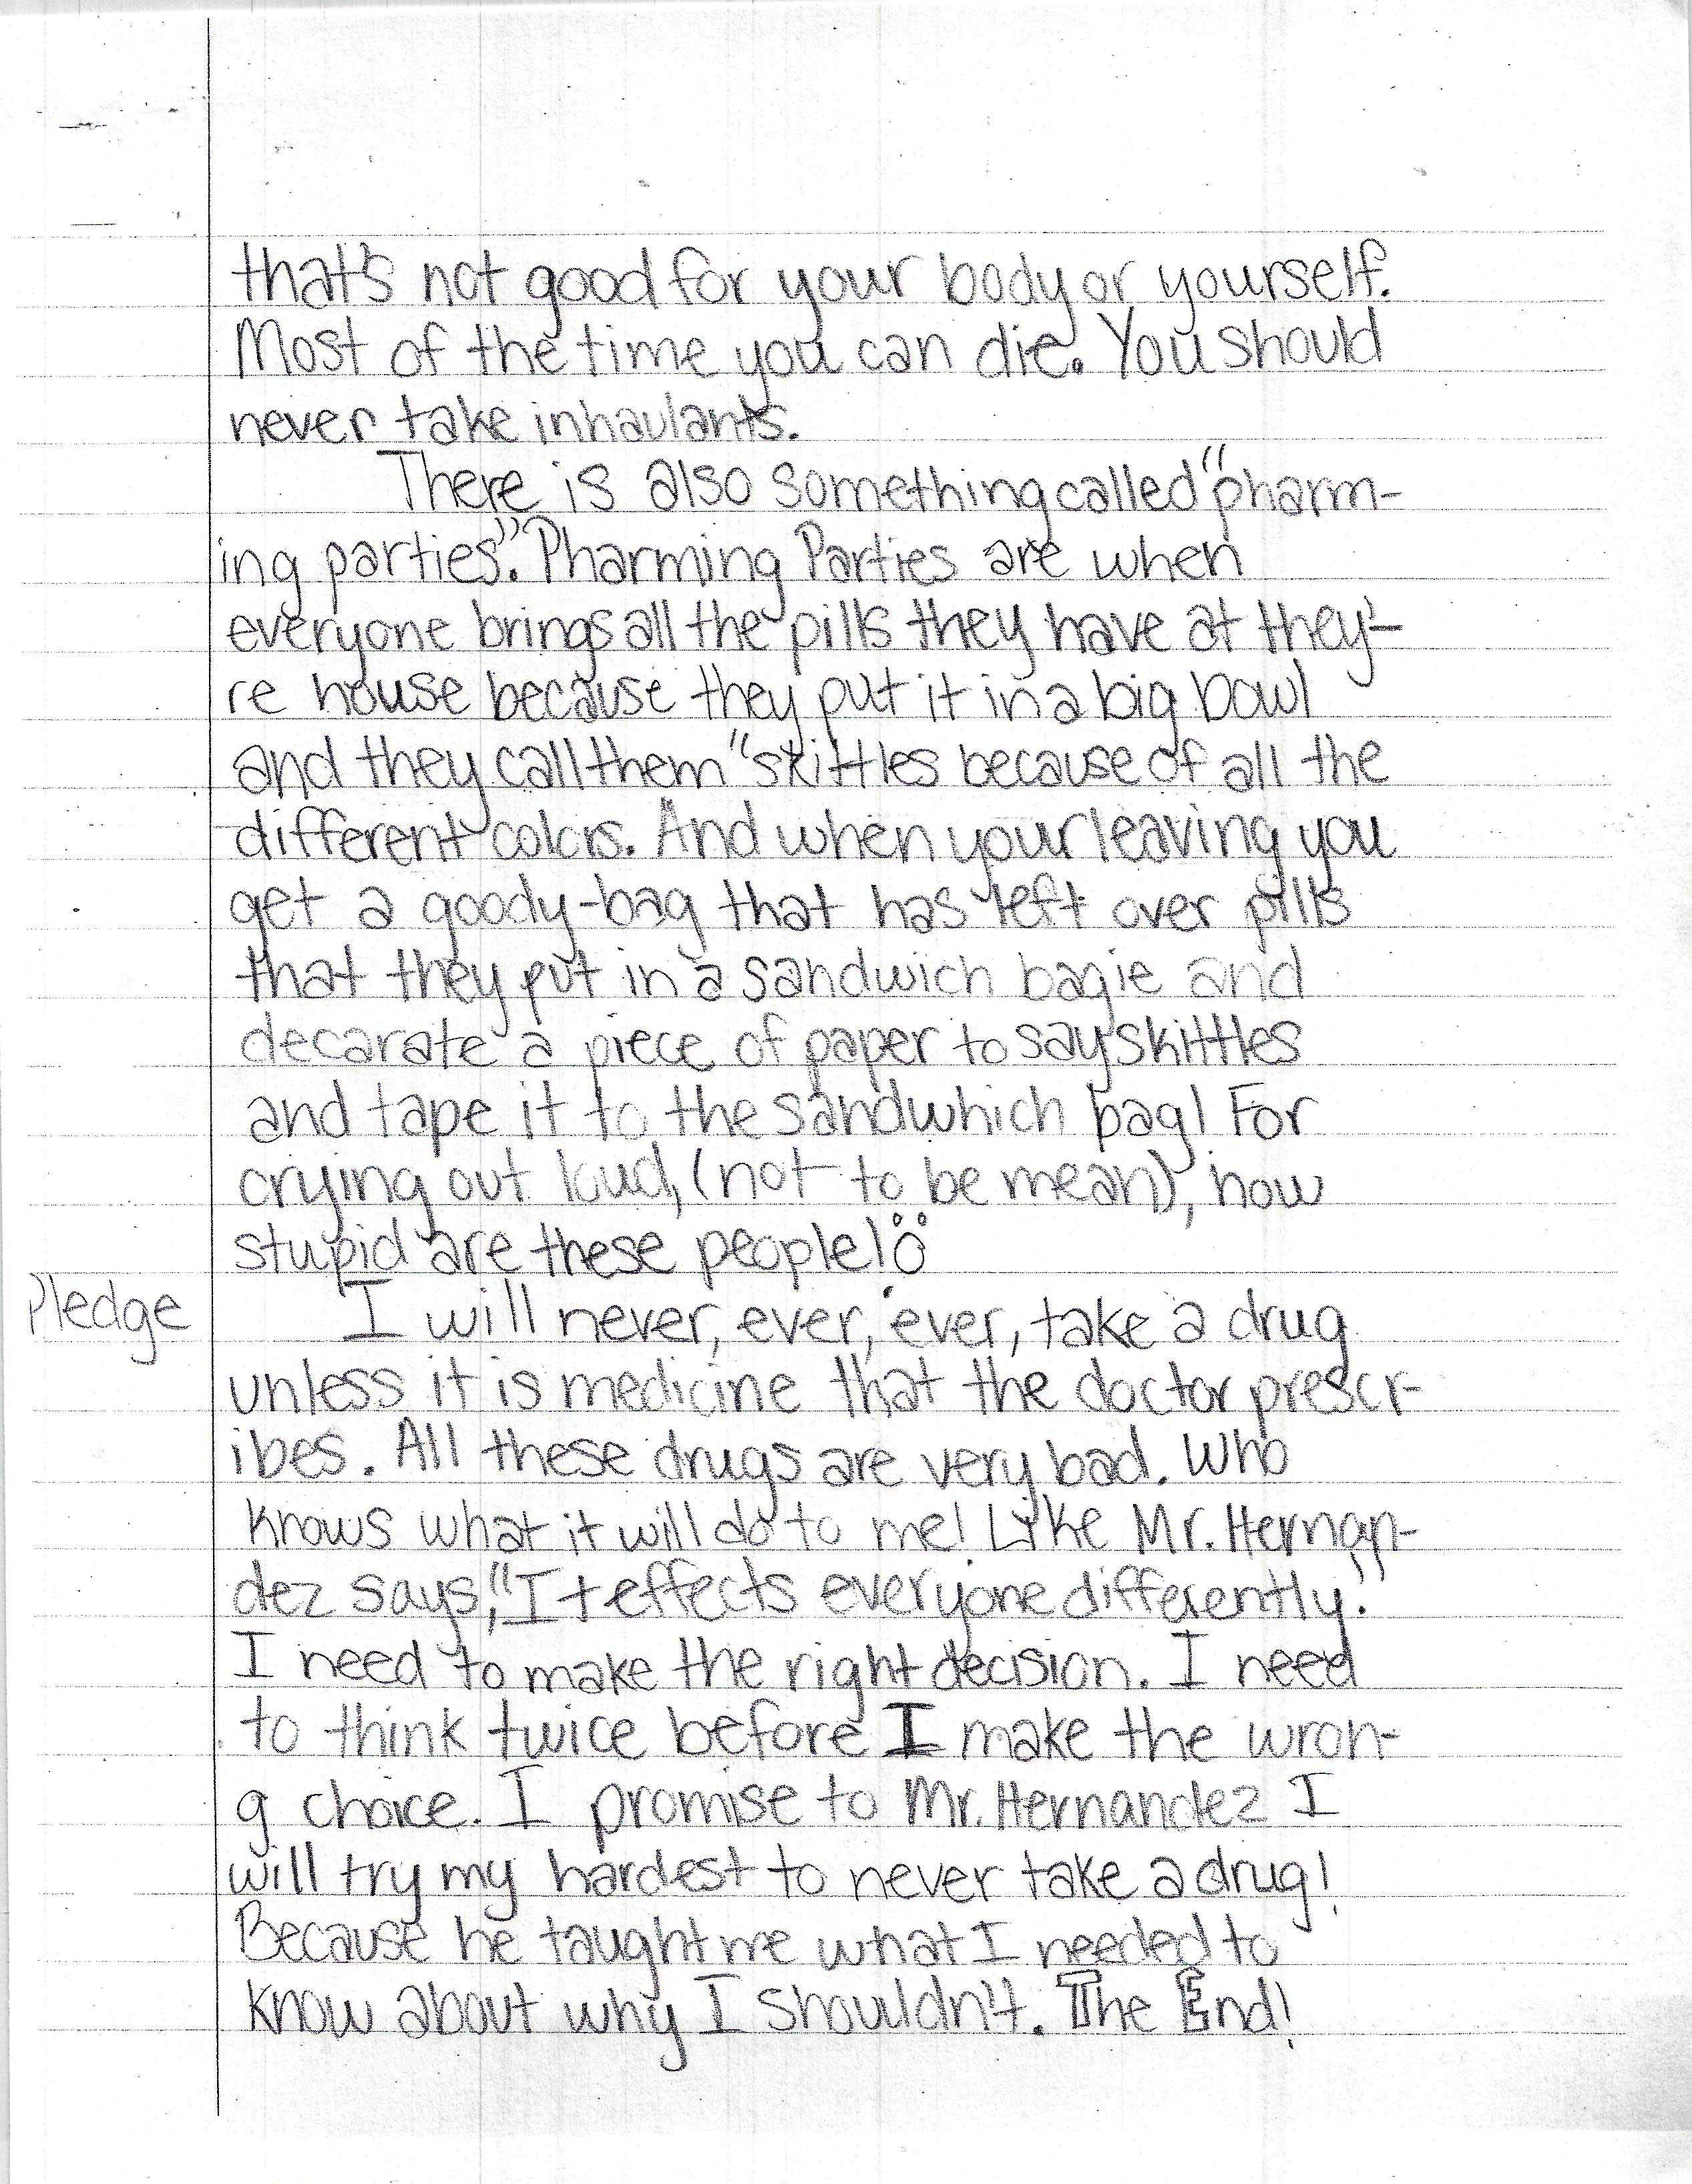 that's not good for your body or yourself.
Most of the time you can die. You should
never take inhaulants.
There is also something called "pharm-
ing parties". Pharming Parties are when
everyone brings all the pills they have at they'-
re house because they put it in a big bowl
and they call them "skittles because of all the
different colors. And when your leaving you
get a goody-bag that has left over pills
that they put in a sandwich bagie and
decarate a piece of paper to say skittles
and tape it to the sandwhich bag! For
crying out loud, (not to be mean), how
stupid are these people!
Pledge I will never, ever, ever, take a drug
unless it is medicine that the doctor prescr-
ibes. All these drugs are very bad. Who
knows what it will do to me! Like Mr. Hernan-
dez says, "It effects everyone differently."
I need to make the right decision. I need
to think twice before I make the wron-
g choice. I promise to Mr. Hernandez I
will try my hardest to never take a drug!
Because he taught me what I needed to
know about why I shouldn't. The End!